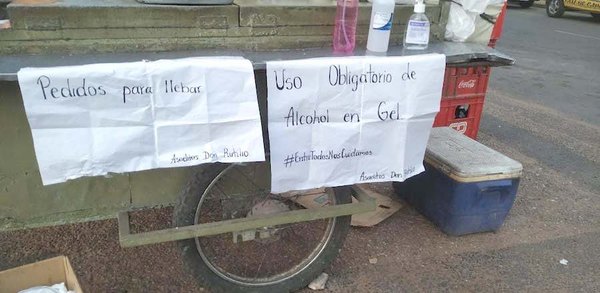 Pedidos para llebar
Asaditos Don Porfirio
Uso Obligatorio de
Alcohol en Gel.
#EntreTodosNosCuidamos
Asaditos Don
Coca-Cola